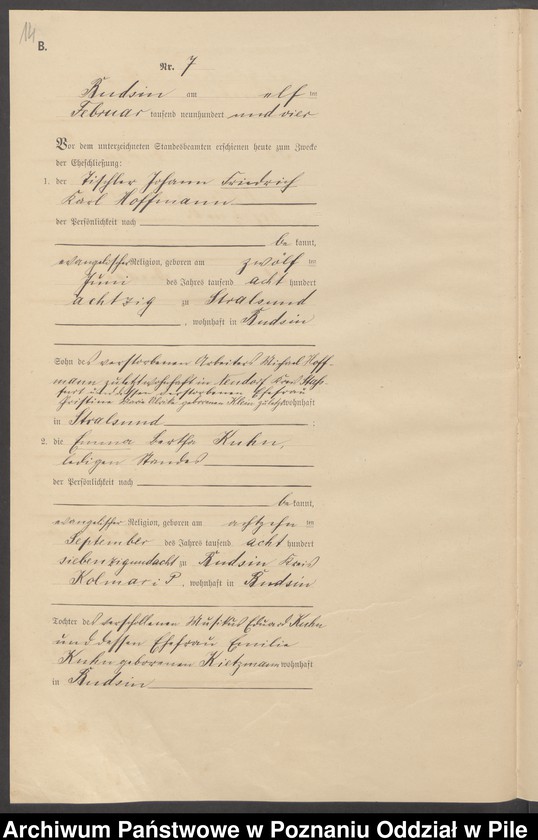 14
B.
Nr. 7
Budsin am elf ten
Februar tausend neunhundert und vier
Vor dem unterzeichneten Standesbeamten erschienen heute zum Zwecke
der Eheschließung:
1. der Tischler Johann Friedrich
Karl Hoffmann
der Persönlichkeit nach
be kannt,
evangelischer Religion, geboren am zwölf ten
Juni des Jahres tausend acht hundert
achtzig zu Stralsund
, wohnhaft in Budsin
Sohn des verstorbenen Arbeiters Michael Hoff-
mann zuletzt wohnhaft in Neudorf Kreis
und dessen verstorbenen Ehefrau
Christine Marie geborenen Klein zuletzt wohnhaft
in Stralsund ;
2. die Emma Bertha Kuhn,
ledigen Standes
der Persönlichkeit nach
be kannt,
evangelischer Religion, geboren am achtzehn ten
September des Jahres tausend acht hundert
siebenzigundacht zu Budsin Kreis
Kolmar i P. , wohnhaft in Budsin
Tochter des verschollenen Musikus Eduard Kuhn
und dessen Ehefrau Emilie
Kuhn geborenen Kietzmann wohnhaft
in Budsin
Archiwum Państwowe w Poznaniu Oddział w Pile